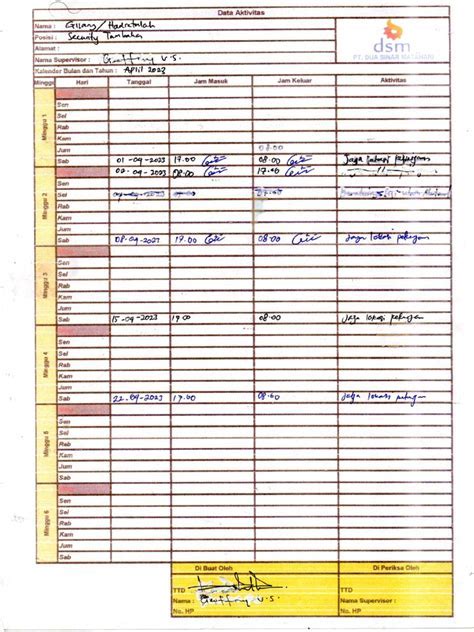 Data Aktivitas
Nama : Gilang / Hadiatulah
Posisi : Security Tambahan
Alamat :
Nama Supervisor : Geoffrey V.S.
Kalender Bulan dan Tahun : April 2023
dsm
PT. DUA SINAR MATAHARI
Minggu Hari Tanggal Jam Masuk Jam Keluar Aktivitas
Minggu 1
Sen
Sel
Rab
Kam
Jum 08.00
Sab 01-04-2023 17.00 08.00 Jaga lokasi pekerjaan
02-04-2023 08.00 17.40 — 11 —
Minggu 2
Sen
Sel
Rab
Kam
Jum
Sab 08-04-2023 17.00 08.00 Jaga lokasi pekerjaan
Minggu 3
Sen
Sel
Rab
Kam
Jum
Sab 15-04-2023 17.00 08.00 Jaga lokasi pekerjaan
Minggu 4
Sen
Sel
Rab
Kam
Jum
Sab 22-04-2023 17.00 08.00 Jaga lokasi pekerjaan
Minggu 5
Sen
Sel
Rab
Kam
Jum
Sab
Minggu 6
Sen
Sel
Rab
Kam
Jum
Sab
Di Buat Oleh Di Periksa Oleh
TTD TTD
Nama : Geoffrey V.S. Nama Supervisor :
No. HP No. HP